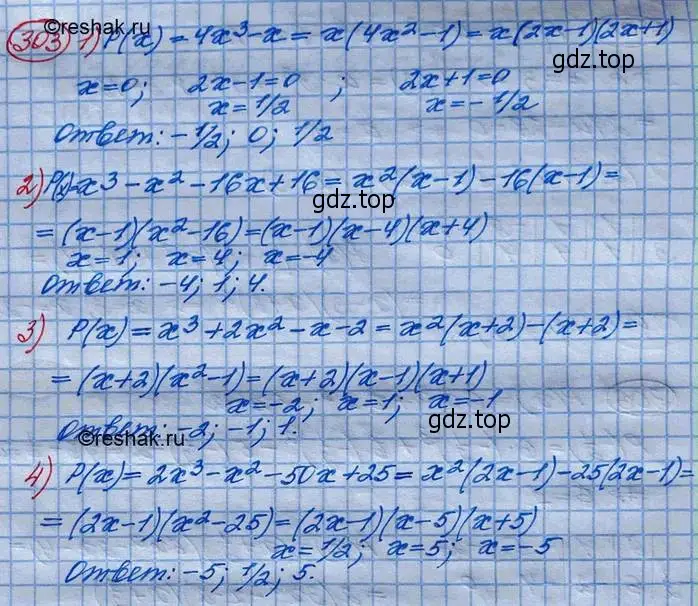 ©reshak.ru
303 1) P(x) = 4x³ - x = x(4x² - 1) = x(2x-1)(2x+1)
gdz.top
x=0; 2x-1=0 ; 2x+1=0
x=1/2 x=-1/2
Ответ: -1/2; 0; 1/2
2) P(x)=x³ - x² - 16x + 16 = x²(x-1) - 16(x-1) =
gdz.top
= (x-1)(x²-16) = (x-1)(x-4)(x+4)
x=1; x=4; x=-4
Ответ: -4; 1; 4.
3) P(x) = x³ + 2x² - x - 2 = x²(x+2) - (x+2) =
= (x+2)(x²-1) = (x+2)(x-1)(x+1)
x=-2; x=1; x=-1
gdz.top
Ответ: -2; -1; 1.
©reshak.ru
4) P(x) = 2x³ - x² - 50x + 25 = x²(2x-1) - 25(2x-1) =
= (2x-1)(x²-25) = (2x-1)(x-5)(x+5)
x=1/2; x=5; x=-5
Ответ: -5; 1/2; 5.
gdz.top